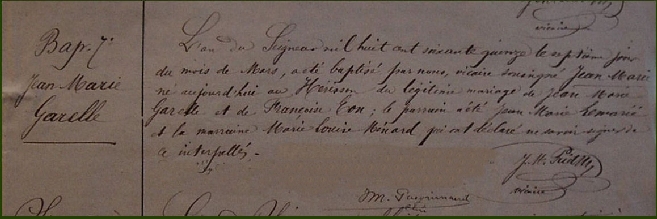 vicaire
Bap. 7e
Jean-Marie
Garelle
L'an du Seigneur mil huit cent soixante quinze le septième jour
du mois de Mars, a été baptisé par nous, vicaire soussigné Jean Marie
né aujourd'hui au du légitime mariage de Jean Marie
Garelle et de Françoise Eon ; le parrain a été Jean Marie Lemarié
et la marraine Marie Louise Ménard qui ont déclaré ne savoir signer de
ce interpellés.
vicaire